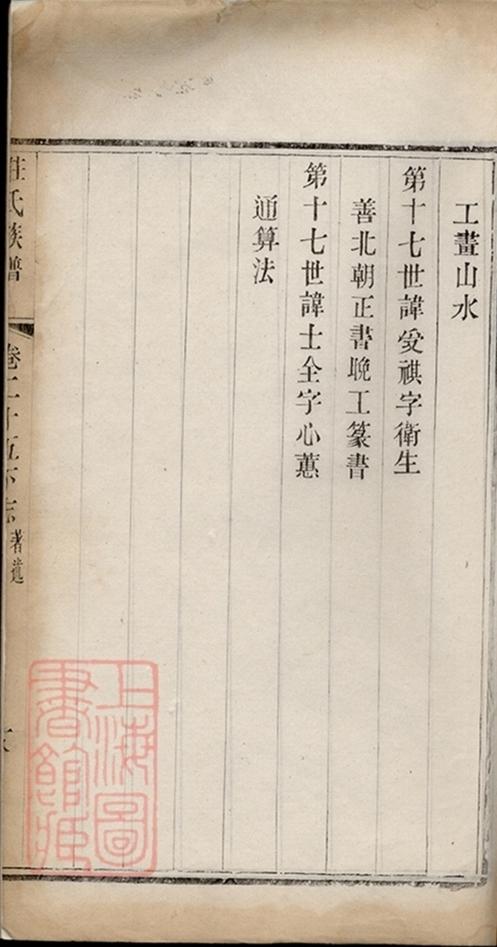 工畫山水
第十七世諱愛祺字衛生
善北朝正書晚工篆書
第十七世諱士全字心蕙
通算法
莊氏族譜
卷二十五下
著遺
上海圖書館藏